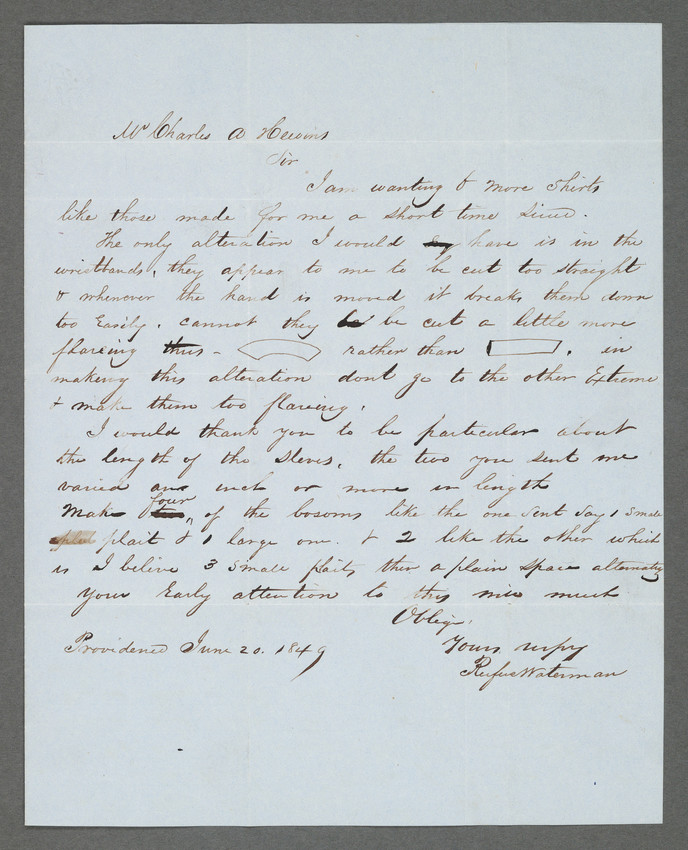 Mr Charles A Hewins
Sir
I am wanting 6 more Shirts
like those made for me a short time since.
The only alteration I would have is in the
wristbands, they appear to me to be cut too straight
& whenever the hand is moved it breaks them down
too Easily. cannot they be cut a little more
flareing thus - rather than . in
making this alteration dont go to the other Extreme
& make them too flareing.
I would thank you to be particular about
the length of the sleves, the two you sent me
varied an inch or more in length
Make four of the bosoms like the one sent say 1 small
plait & 1 large one. & 2 like the other which
is I belive 3 small plaits then a plain space alternately
Your Early attention to this will much
Oblige.
Providence June 20. 1849 Yours
Rufus Waterman